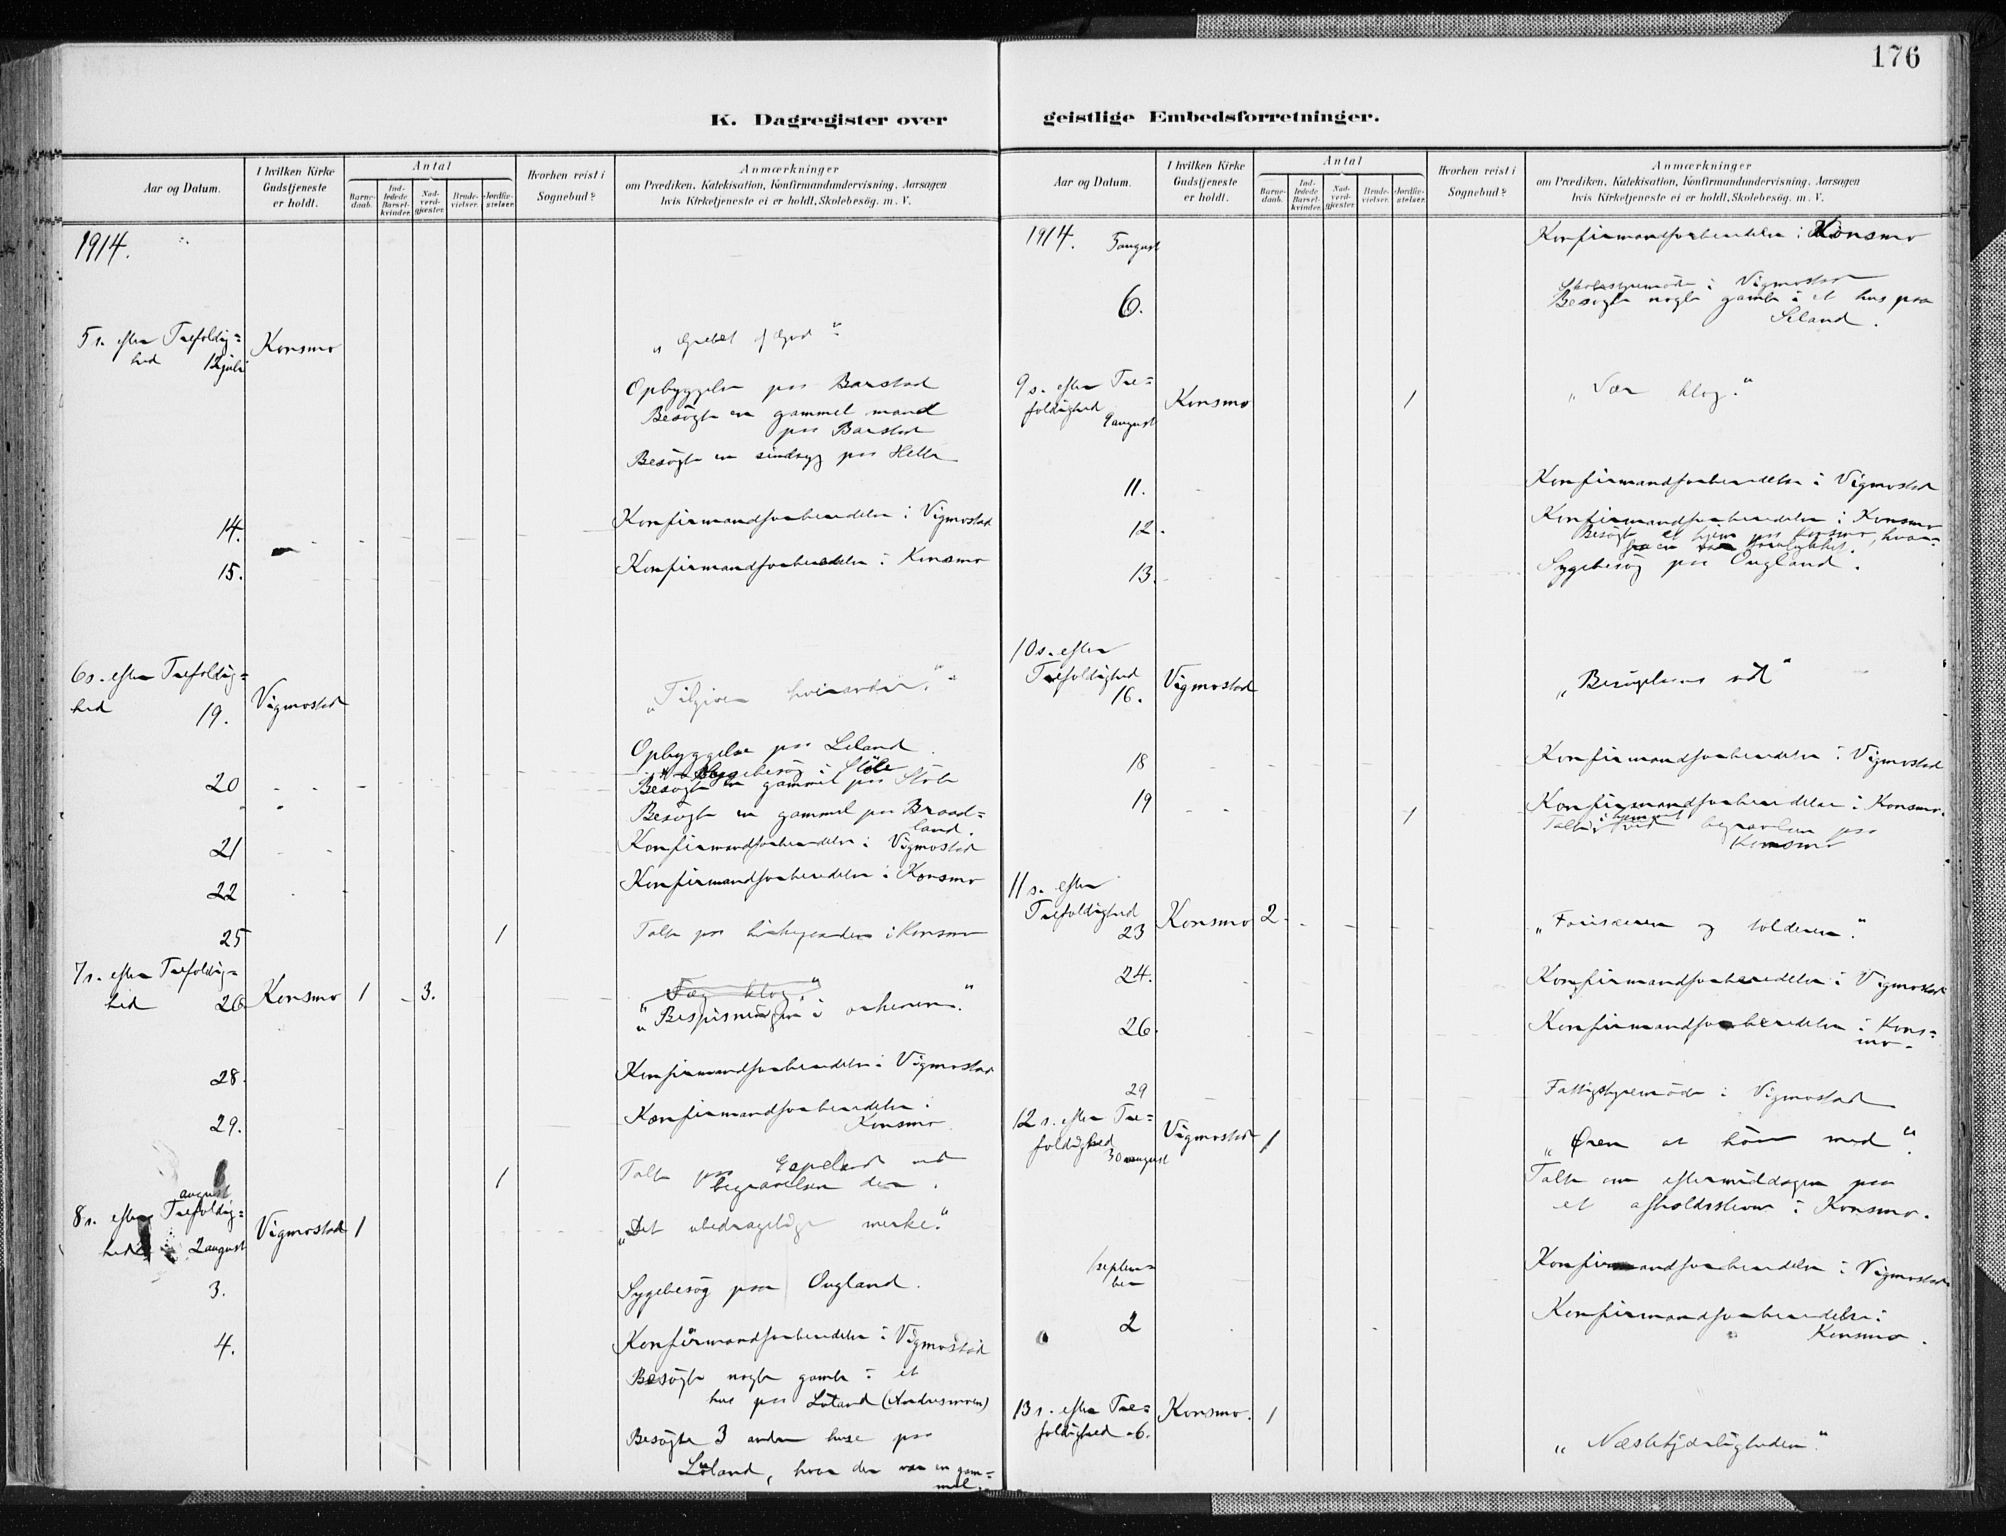 176
K. Dagregister over
geistlige Embedsforretninger.
Aar og Datum.
I hvilken Kirke
Gudstjeneste
er holdt.
Antal
Barne-
daab.
Ind-
ledede
Barsel-
kvinder.
Nad-
verd-
gjæster.
Brude-
vielser.
Jordfæ-
stelser.
Hvorhen reist i
Sognebud?
Anmærkninger
om Prædiken, Katekisation, Konfirmandundervisning, Aarsagen
hvis Kirketjeneste ei er holdt, Skolebesög, m. V.
1914.
5 s. efter Trefoldig=
hed 12 juli
Konsmo
„Grebet af Gud"
Opbyggelse paa Barstad
Besøgte en gammel mand
paa Barstad
Besøgte en sindsyg paa Helle
14.
Konfirmandforberedelse i Vigmostad
15.
Konfirmandforberedelse i Konsmo
6 s. efter Trefoldig=
hed 19.
Vigmostad
„Tilgiver hverandre."
Opbyggelse paa Leland.
20
Besøgte en gammel paa Støle
Besøgte en gammel paa Braad=
land.
21
Konfirmandforberedelse i Vigmostad
22
Konfirmandforberedelse i Konsmo
25
1
Talte paa kirkegaarden i Konsmo
7 s. efter Trefoldig=
hed 26
Konsmo 1 3.
Vær klog."
„Bespisningen i ørkenen."
28.
Konfirmandforberedelse i Vigmostad
29.
Konfirmandforberedelse i
Konsmo
1
august
1
Talte paa Espeland ved
begravelsen der.
8 s. efter Trefoldig=
hed 2 august
Vigmostad 1
„Det ubedragelige merke."
3.
Sygebesøg paa Ougland.
4.
Konfirmandforberedelse i Vigmostad
Besøgte nogle gamle i et
hus paa Løland (Andresmoen)
Besøgte 3 andre huse paa
Løland, hvor der var en gam=
mel.
Aar og Datum.
I hvilken Kirke
Gudstjeneste
er holdt.
Antal
Barne-
daab.
Ind-
ledede
Barsel-
kvinder.
Nad-
verd-
gjæster.
Brude-
vielser.
Jordfæ-
stelser.
Hvorhen reist i
Sognebud?
Anmærkninger
om Prædiken, Katekisation, Konfirmandundervisning, Aarsagen
hvis Kirketjeneste ei er holdt, Skolebesög, m. V.
1914. 5 august
Konfirmandforberedelse i Konsmo
6.
Skolestyremøde i Vigmostad
Besøgte nogle gamle i et hus paa
Leland.
9 s. efter Tre=
foldighed
9 august
Konsmo
1
„Vær klog."
11.
Konfirmandforberedelse i Vigmostad
12.
Konfirmandforberedelse i Konsmo
Besøgte et hjem paa Konsmo, hvor=
13.
Sygebesøg paa Ougland.
10 s. efter
Trefoldighed
16.
Vigmostad
„Besøgelsens tid"
18
Konfirmandforberedelse i Vigmostad
19
1
Konfirmandforberedelse i Konsmo.
Talte i hjemmet ved begravelse paa
Konsmo
11 s. efter
Trefoldighed
23
Konsmo 2
„Farisæeren og tolderen."
24.
Konfirmandforberedelse i Vigmostad
26.
Konfirmandforberedelse i Kons=
mo.
29
Fattigstyremøde i Vigmostad
12 s. efter Tre=
foldighed
30 august
Vigmostad 1
„Øren at høre med".
Talte om eftermiddagen paa
et afholdsstevne i Konsmo.
1 septem=
ber
Konfirmandforberedelse i Vigmostad
2
Konfirmandforberedelse i
Konsmo.
13 s. efter Tre=
foldighed 6.
Konsmo. 1
„Næstekjærligheden."